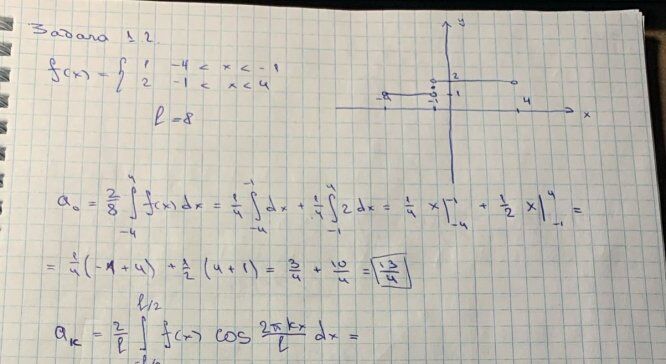 Задача 1.2.
f(x) = { 1 -4 < x < -1
2 -1 < x < 4
l = 8
y
2
1
-4
-1
4
x
a₀ = 2/8 ∫₋₄⁴ f(x) dx = 1/4 ∫₋₄⁻¹ dx + 1/4 ∫₋₁⁴ 2 dx = 1/4 x |₋₄⁻¹ + 1/2 x |₋₁⁴ =
= 1/4 (-1 + 4) + 1/2 (4 + 1) = 3/4 + 10/4 = 13/4
aₖ = 2/l ∫_{-l/2}^{l/2} f(x) cos 2πkx/l dx =